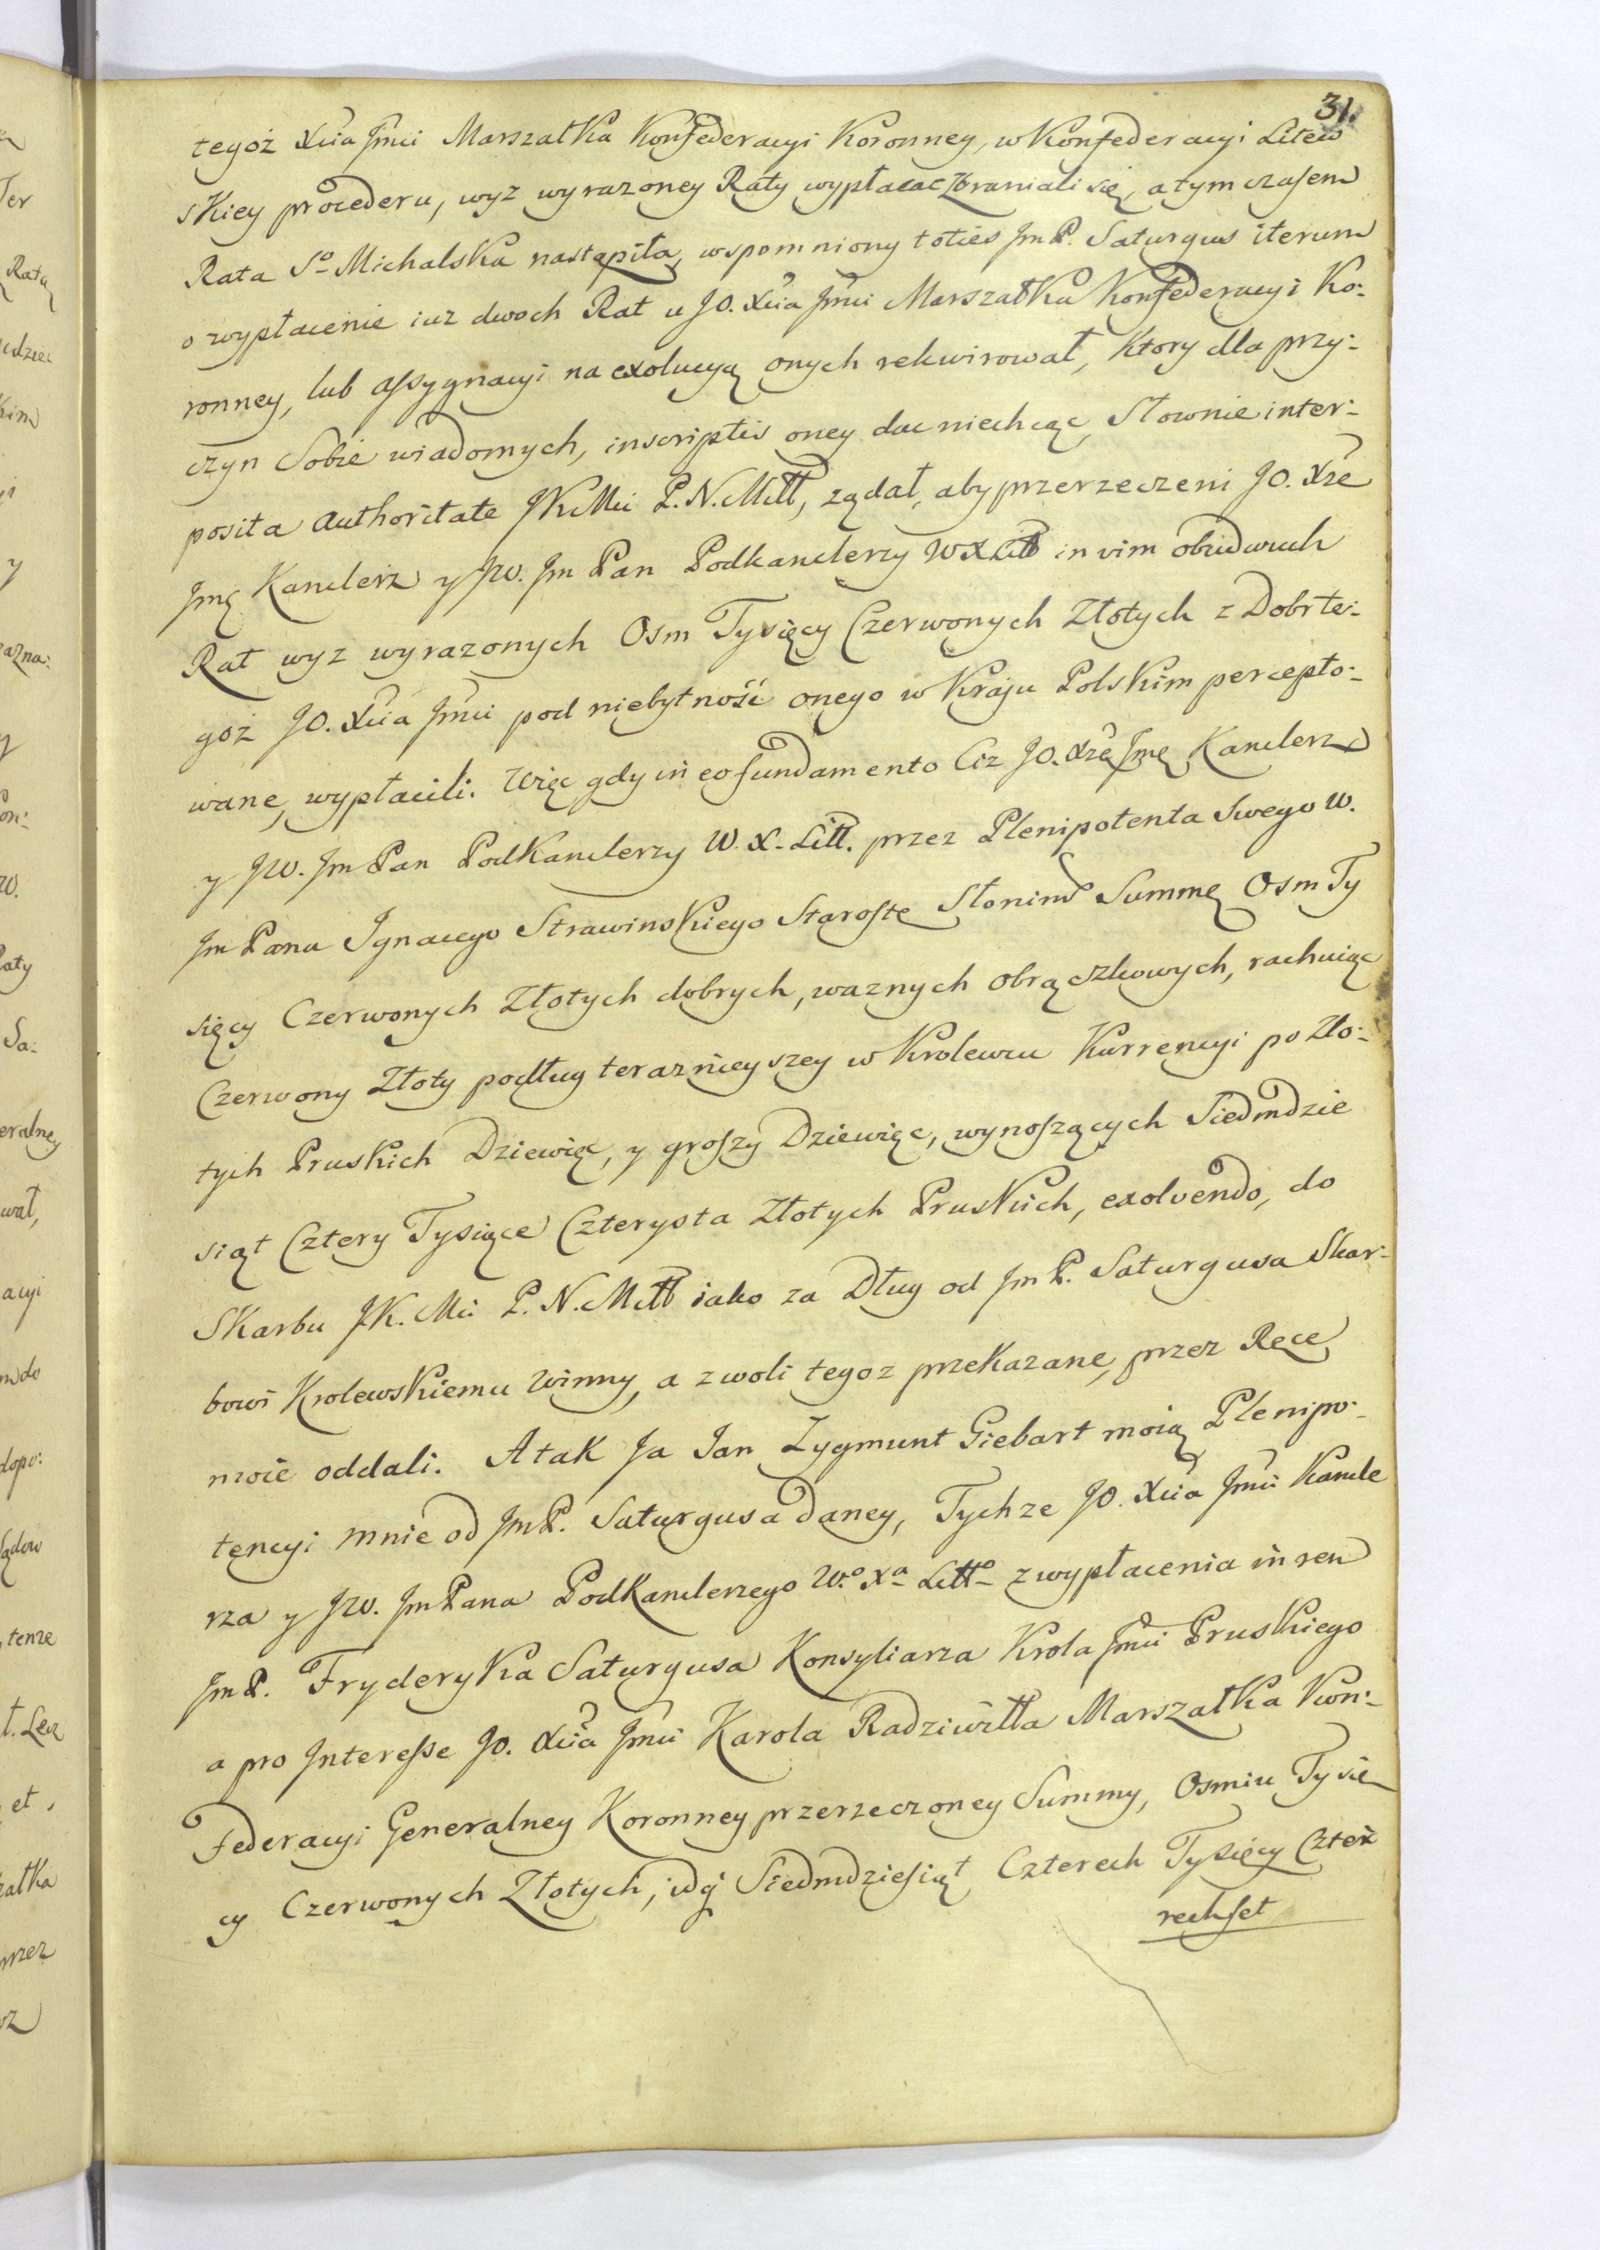 31.
tegoż Xcia Jmci Marszałka Konfederacyi Koronney, w Konfederacyi Litew
skiey procederu, wyz wyrazoney Raty wypłacac zbraniali się, a tym czasem
Rata So Michalska nastąpiła, wspomniony toties Jm P. Saturgus iterum
o wypłacenie iuz dwoch Rat u JO. Xcia Jmci Marszałka Konfederacyi Ko:
ronney, lub assygnacyi na exolucyą onych rekwirował, Ktory dla przy:
czyn Sobie wiadomych, inscriptis oney dac niechcąc, Słownie inter:
posita Authoritate JKMci P. N. Młł, ządał, aby przerzeczeni JO. Xże
Jmę Kanclerz y JW. Jm Pan Podkanclerzy W X Litt in vim obudwuch
Rat wyz wyrazonych Osm Tysięcy Czerwonych Złotych z Dobr te:
goż JO. Xcia Jmci pod niebytność onego w Kraju Polskim percepto:
wane, wypłacili. Więc gdy in eo fundamento Ciz JO. Xżę Jmę Kanclerz
y JW. Jm Pan PodKanclerzy W. X. Litt. przez Plenipotenta Swego W.
Jm Pana Ignacego Strawinskiego Starostę Słonim Summę Osm Ty
sięcy Czerwonych Złotych dobrych, waznych obrączkowych, rachuiąc
Czerwony Złoty podług teraznieyszey w Krolewcu Kurrencyi po Zło:
tych Pruskich Dziewięc, y groszy Dziewięc, wynoszących Siedmdzie
siąt Cztery Tysiące Czterysta Złotych Pruskich, exolvendo, do
Skarbu JK. Mci P. N. Młł iako za Dług od Jm P. Saturgusa Skar:
bowi Krolewskiemu winny, a z woli tegoz przekazane, przez Ręce
moie oddali. A tak Ja Jan Zygmunt Giebart moią Plenipo:
tencyi mnie od Jm P. Saturgusa Daney, Tychze JO. Xcia Jmci Kancle
rza y JW. Jm Pana PodKanclerzego Wo. Xa Litto z wypłacenia in rem
Jm P. Fryderyka Saturgusa Konsyliarza Krola Jmci Pruskiego
a pro Interesse JO. Xcia Jmci Karola Radziwiłła Marszałka Kon:
Federacyi Generalney Koronney przerzeczoney Summy, Osmiu Tysię
cy Czerwonych Złotych, Siedmdziesiąt Czterech Tysięcy Czte
rechset